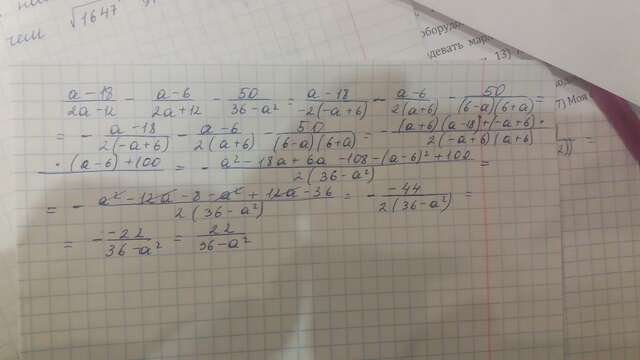 чем √1647
оборудо
девать мар
13)
7) Моя
2))
(a-18)/(2a-12) - (a-6)/(2a+12) - 50/(36-a²) = (a-18)/(-2(-a+6)) - (a-6)/(2(a+6)) - 50/((6-a)(6+a)) =
= - (a-18)/(2(-a+6)) - (a-6)/(2(a+6)) - 50/((6-a)(6+a)) = - ((a+6)(a-18)+(-a+6)·
·(a-6)+100)/(2(-a+6)(a+6)) = - (a²-18a+6a-108-(a-6)²+100)/(2(36-a²)) =
= - (a²-12a-8-a²+12a-36)/(2(36-a²)) = - (-44)/(2(36-a²)) =
= - (-22)/(36-a²) = 22/(36-a²)